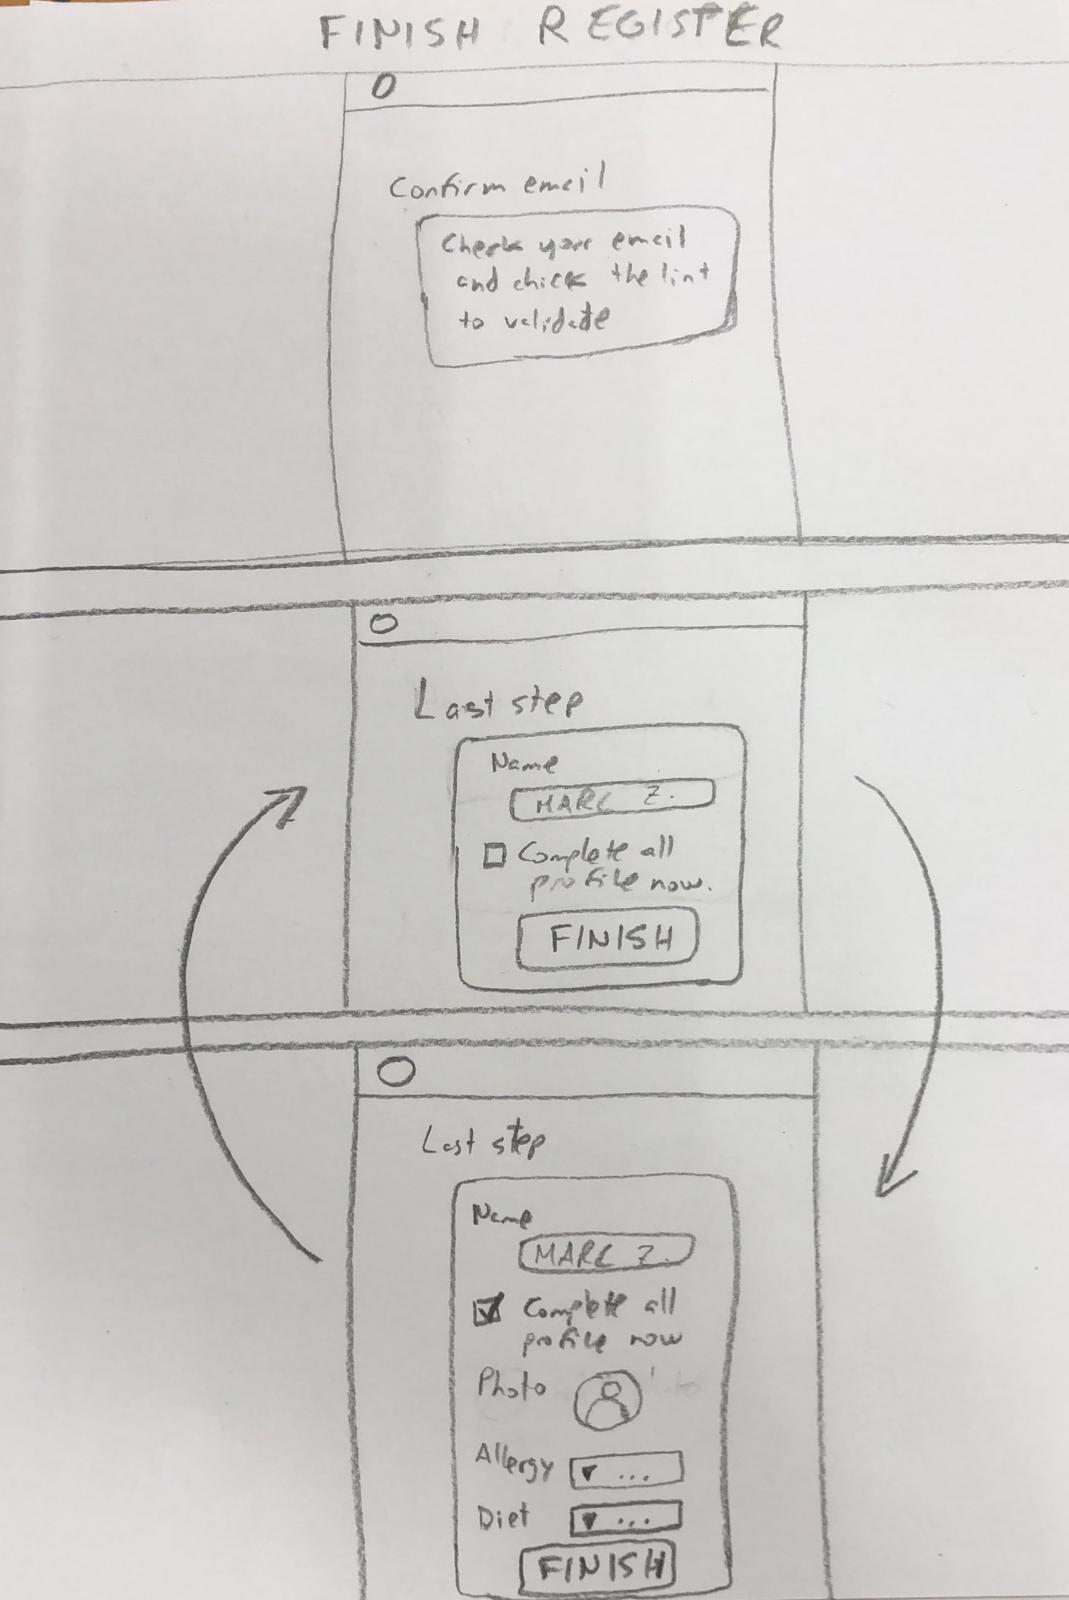 FINISH REGISTER
Confirm email
Check your email
and chick the lint
to validate
Last step
Name
MARC Z.
Complete all
profile now.
FINISH
Last step
Name
MARC Z.
Complete all
profile now
Photo
Allergy ...
Diet ...
FINISH